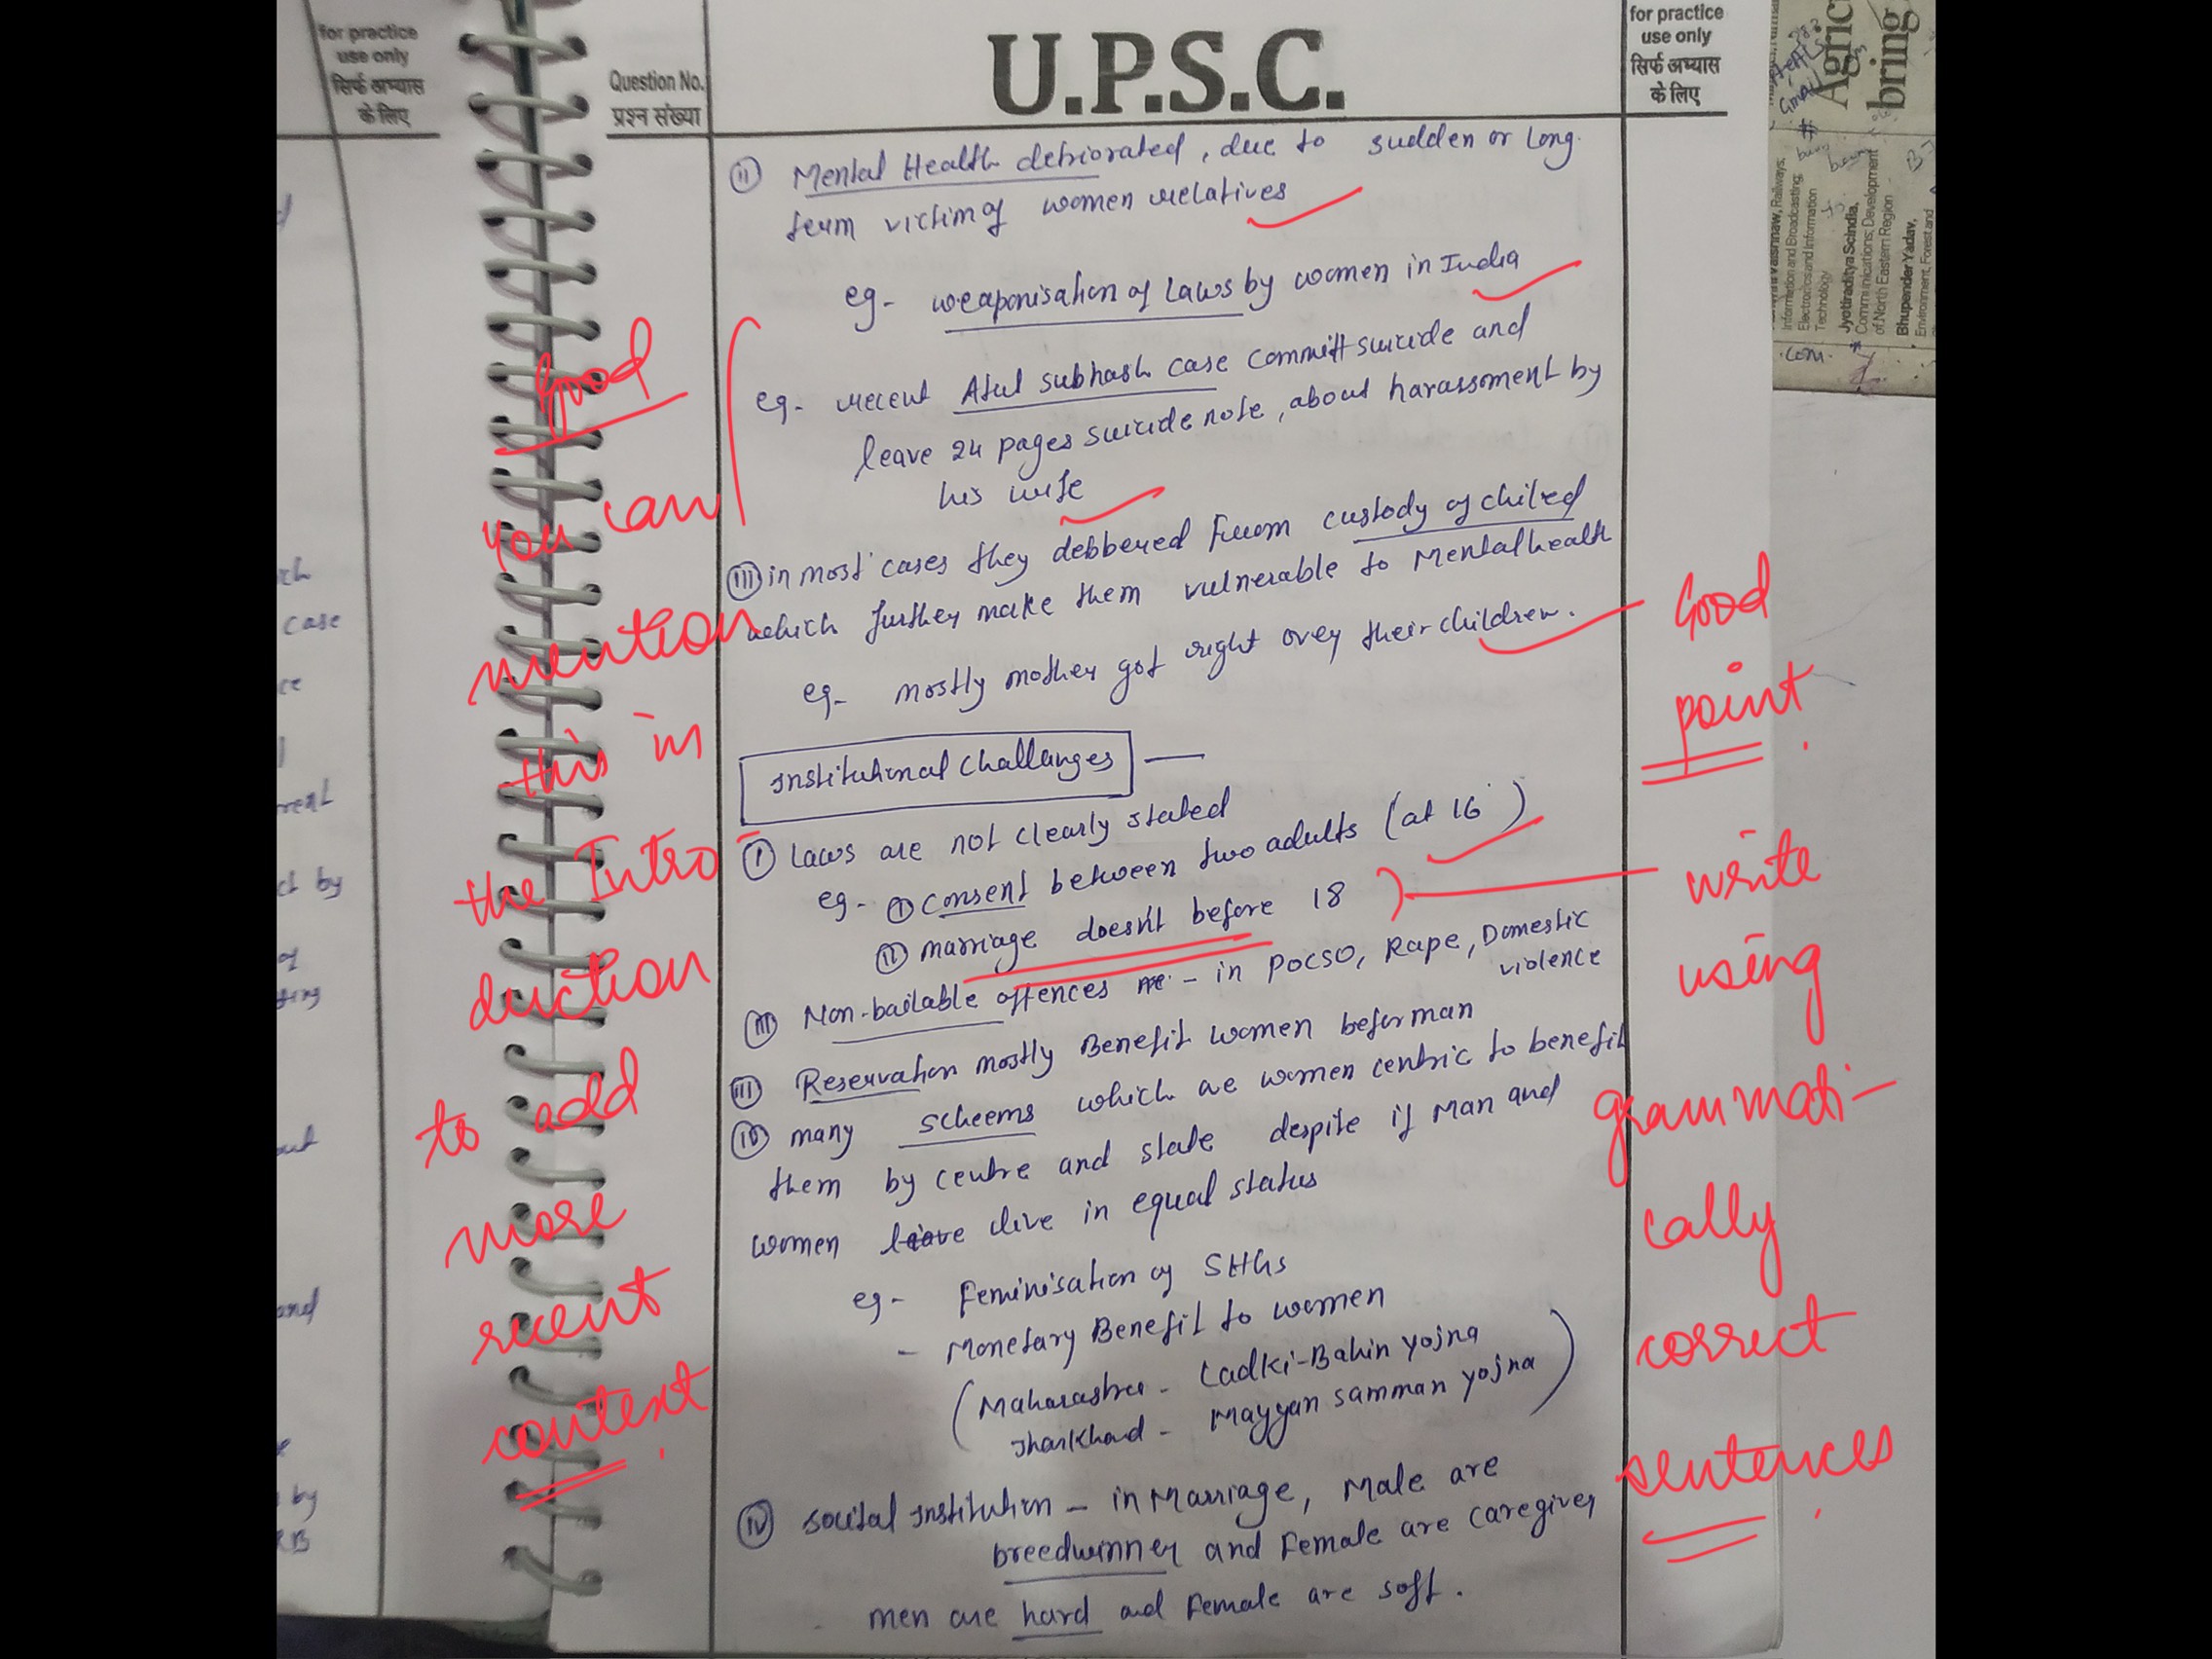 for practice
use only
सिर्फ अभ्यास
के लिए
Question No.
प्रश्न संख्या
U.P.S.C.
for practice
use only
सिर्फ अभ्यास
के लिए
(ii) Mental Health detriorated, due to sudden or long
term victim of women relatives
eg- weaponisation of laws by women in India
eg- recent Atul subhash case committ suicide and
leave 24 pages suicide note, about harassment by
his wife
(iii) in most cases they debbered from custody of chilred
which further make them vulnerable to Mental health
eg- mostly mother got right over their children.
Institutional Challanges —
(i) Laws are not clearly stated
eg- (i) consent between two adults (at 16)
(ii) marriage doesn't before 18
(iii) Non-bailable offences - in POCSO, Rape, Domestic
violence
(iii) Reservation mostly Benefit women befor man
(iv) many scheems which are women centric to benefit
them by centre and state despite if Man and
women live in equal status
eg- Feminisation of SHGs
- Monetary Benefit to women
(Maharashtra - Ladki-Bahin yojna
Jharkhand - Mayyan samman yojna)
(iv) socital institution - in Marriage, Male are
breedwinner and Female are caregiver
men are hard and Female are soft.
Good
you can
mention
this in
the Intro-
duction
to add
more
recent
context.
Good
point.
write
using
grammati-
cally
correct
sentences.
case
rent
by
of
and
by
RB
Agric
bring
Gmail
Vaishnaw, Railways,
Information and Broadcasting;
Electronics and Information
Technology
Jyotiraditya Scindia,
Communications; Development
of North Eastern Region
Bhupender Yadav,
Environment, Forest and
.com.